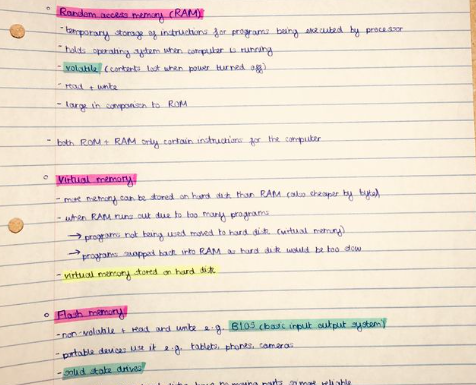 Random access memory (RAM)
- temporary storage of instructions for programs being executed by processor
- holds operating system when computer is running
- volatile (contents lost when power turned off)
- read + write
- large in comparison to ROM
- both ROM + RAM only contain instructions for the computer
Virtual memory
- more memory can be stored on hard disk than RAM (also cheaper by byte)
- when RAM runs out due to too many programs
→ programs not being used moved to hard disk (virtual memory)
→ programs swapped back into RAM as hard disk would be too slow
- virtual memory stored on hard disk
Flash memory
- non-volatile + read and write e.g. BIOS (basic input output system)
- portable devices use it e.g. tablets, phones, cameras
- solid state drives
have no moving parts so more reliable